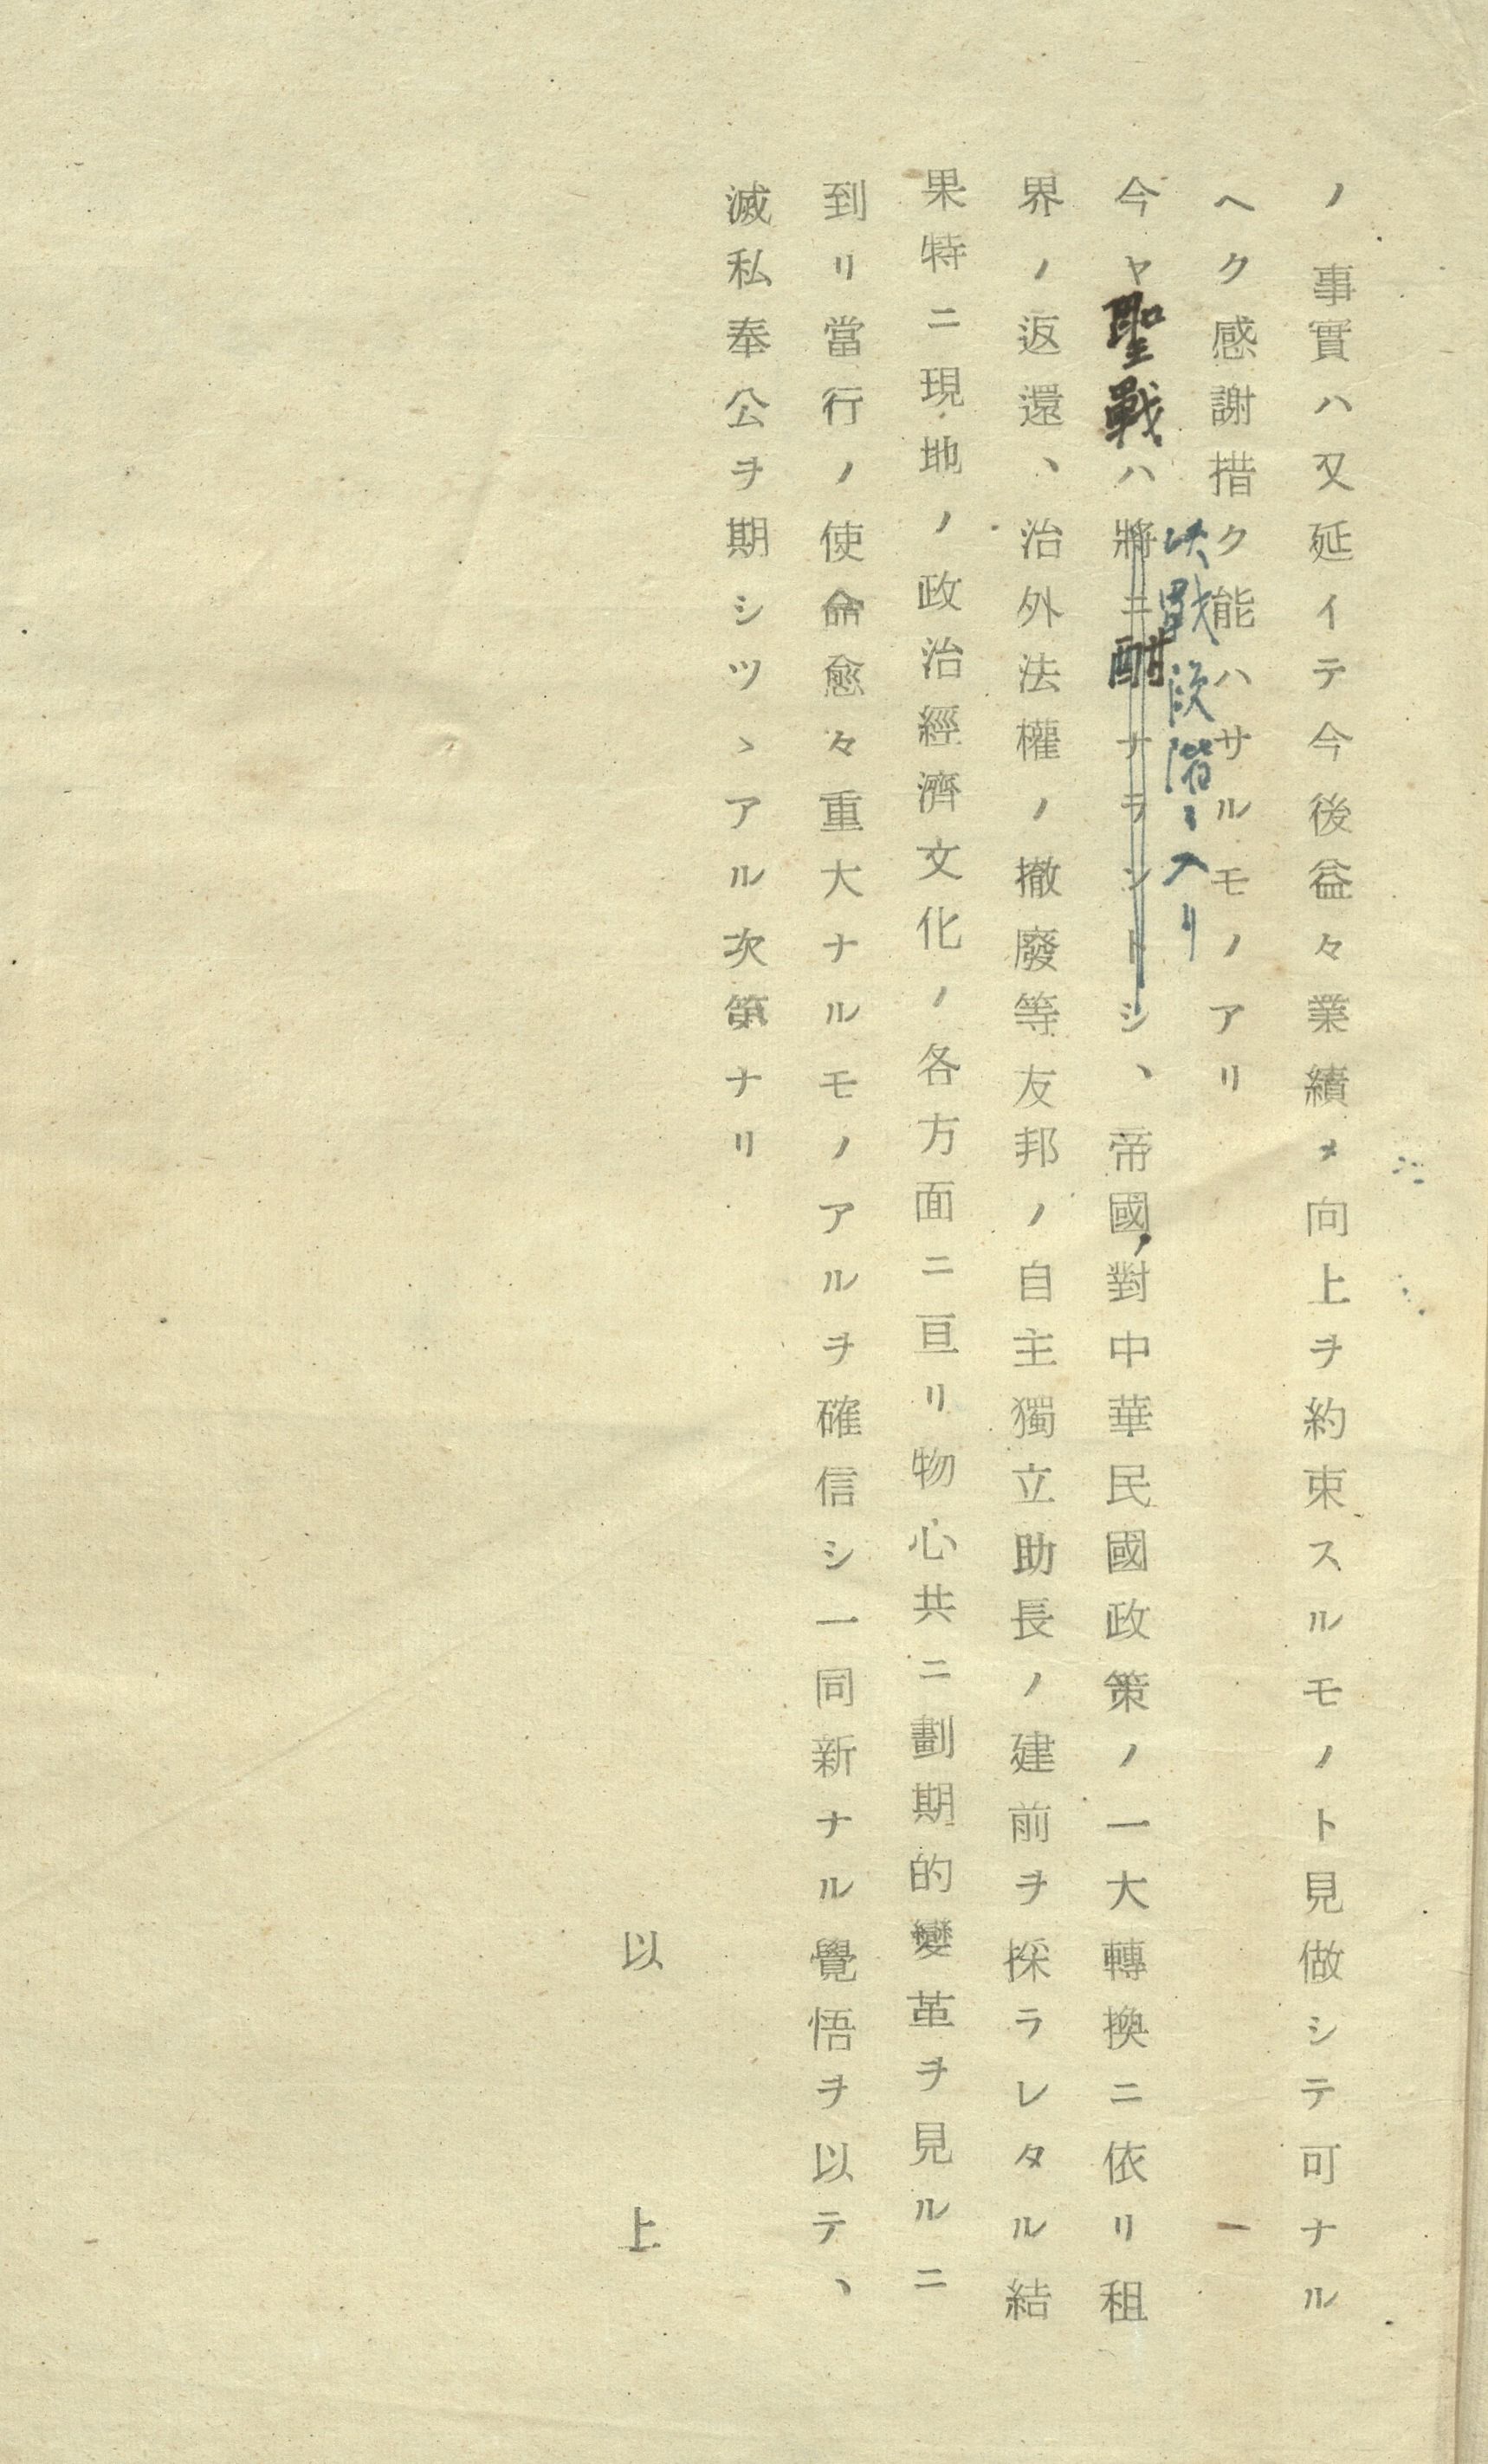 ノ事實ハ又延イテ今後益々業績ノ向上ヲ約束スルモノト見做シテ可ナル
ヘク感謝措ク能ハサルモノアリ
決戰段階ニ入リ
今ヤ聖戰ハ將ニ酣ナラントシ、帝國ノ對中華民國政策ノ一大轉換ニ依リ租
界ノ返還、治外法權ノ撤廢等友邦ノ自主獨立助長ノ建前ヲ採ラレタル結
果特ニ現地ノ政治經濟文化ノ各方面ニ亘リ物心共ニ劃期的變革ヲ見ルニ
到リ當行ノ使命愈々重大ナルモノアルヲ確信シ一同新ナル覺悟ヲ以テ、
滅私奉公ヲ期シツヽアル次第ナリ
以上